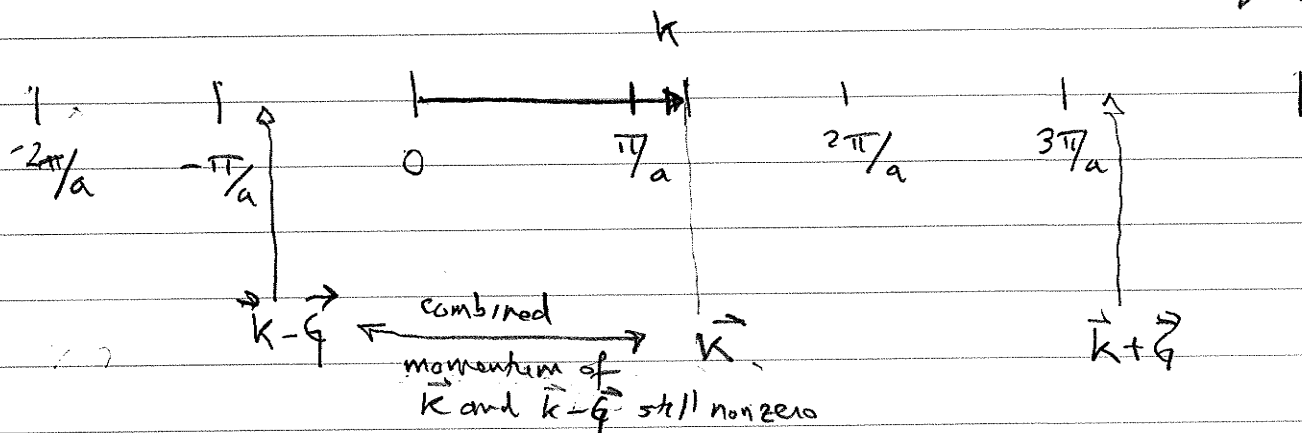 k
-2π/a -π/a 0 π/a 2π/a 3π/a
k⃗-G⃗ combined k⃗ k⃗+G⃗
momentum of
k⃗ and k⃗-G⃗ still nonzero